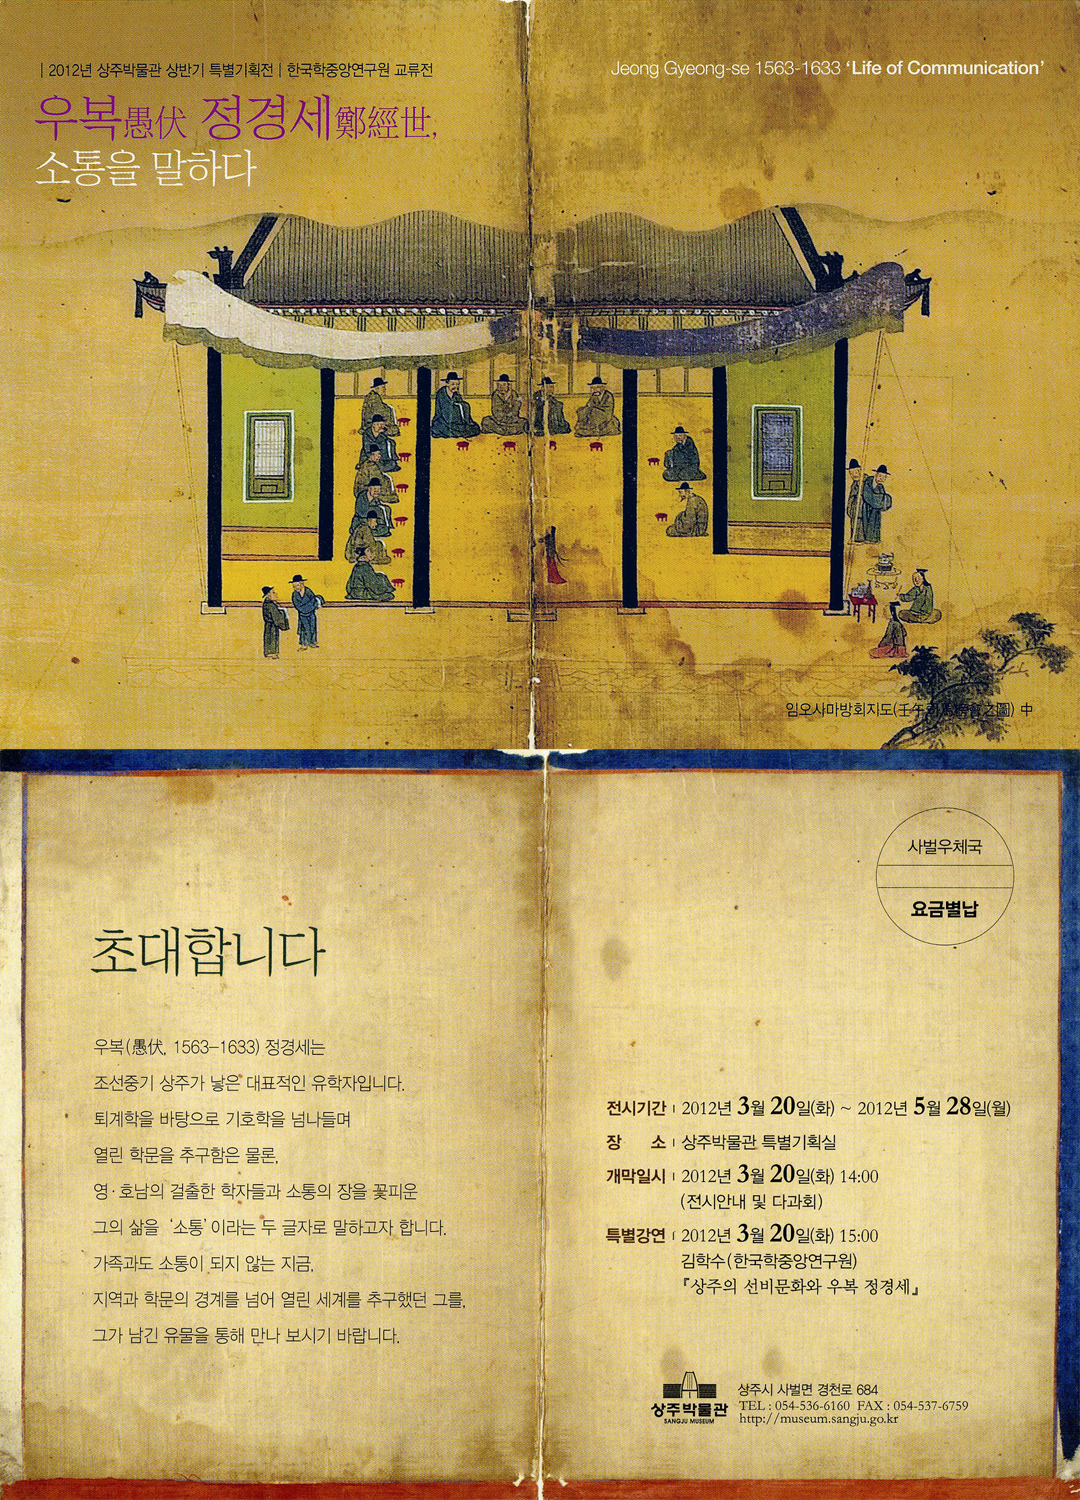 | 2012년 상주박물관 상반기 특별기획전 | 한국학중앙연구원 교류전
우복愚伏 정경세鄭經世,
소통을 말하다
Jeong Gyeong-se 1563-1633 ‘Life of Communication’
임오사마방회지도(壬午司馬榜會之圖) 中
초대합니다
우복(愚伏, 1563-1633) 정경세는
조선중기 상주가 낳은 대표적인 유학자입니다.
퇴계학을 바탕으로 기호학을 넘나들며
열린 학문을 추구함은 물론,
영·호남의 걸출한 학자들과 소통의 장을 꽃피운
그의 삶을 ‘소통’이라는 두 글자로 말하고자 합니다.
가족과도 소통이 되지 않는 지금,
지역과 학문의 경계를 넘어 열린 세계를 추구했던 그를,
그가 남긴 유물을 통해 만나 보시기 바랍니다.
사벌우체국
요금별납
전시기간 | 2012년 3월 20일(화) ~ 2012년 5월 28일(월)
장 소 | 상주박물관 특별기획실
개막일시 | 2012년 3월 20일(화) 14:00
(전시안내 및 다과회)
특별강연 | 2012년 3월 20일(화) 15:00
김학수(한국학중앙연구원)
『상주의 선비문화와 우복 정경세』
상주박물관
SANGJU MUSEUM
상주시 사벌면 경천로 684
TEL : 054-536-6160 FAX : 054-537-6759
http://museum.sangju.go.kr